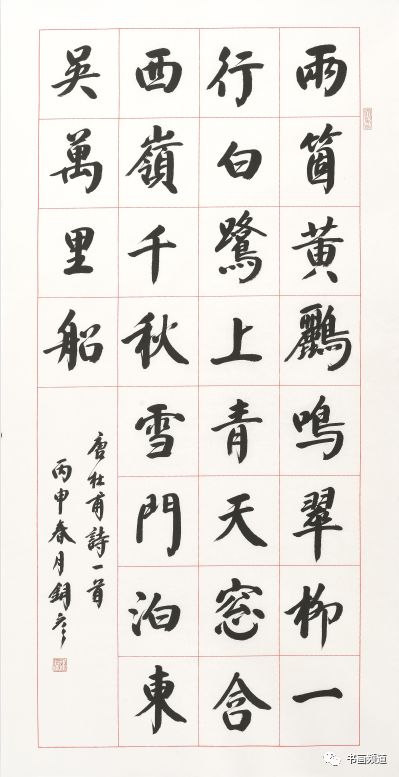 兩箇黃鸝鳴翠柳一
行白鷺上青天窓含
西嶺千秋雪門泊東
吳萬里船
唐杜甫詩一首
丙申春月銅彥
书画频道